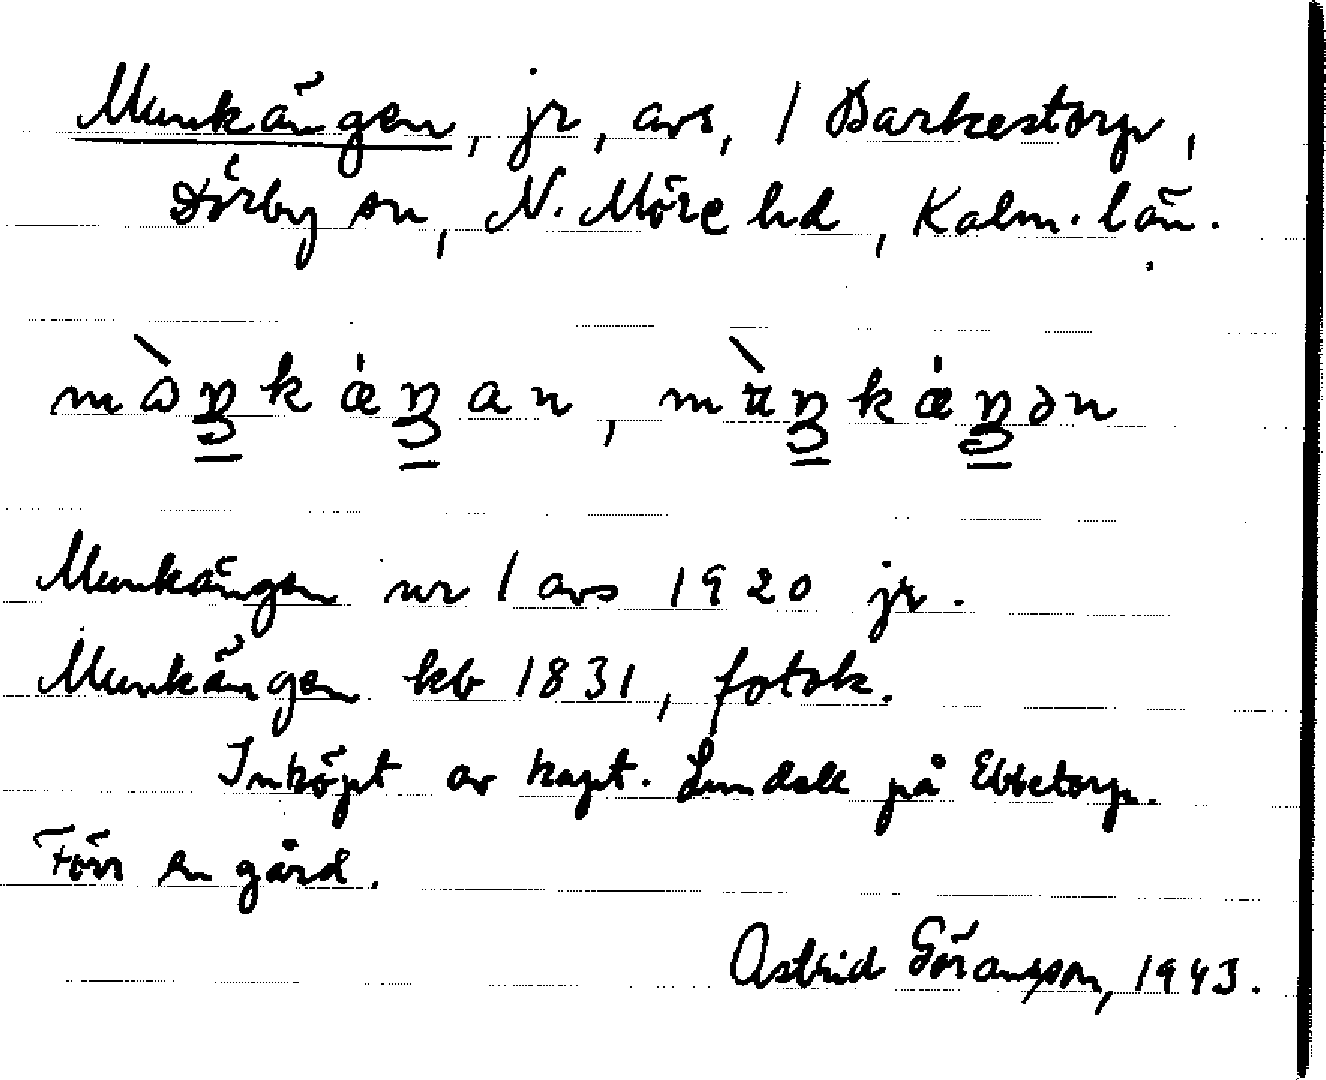 Munkängen, jr, avs, / Barkestorp,
Dörby sn, N. Möre hd, Kalm. län.
mὼŋkǽŋan, mù̈ŋkǽŋən
Munkängen nr 1 avs 1920 jr.
Munkängen kb 1831, fotok.
Inköpt av kapt. Lundell på Ebbetorp.
Förr en gård.
Astrid Göransson, 1943.